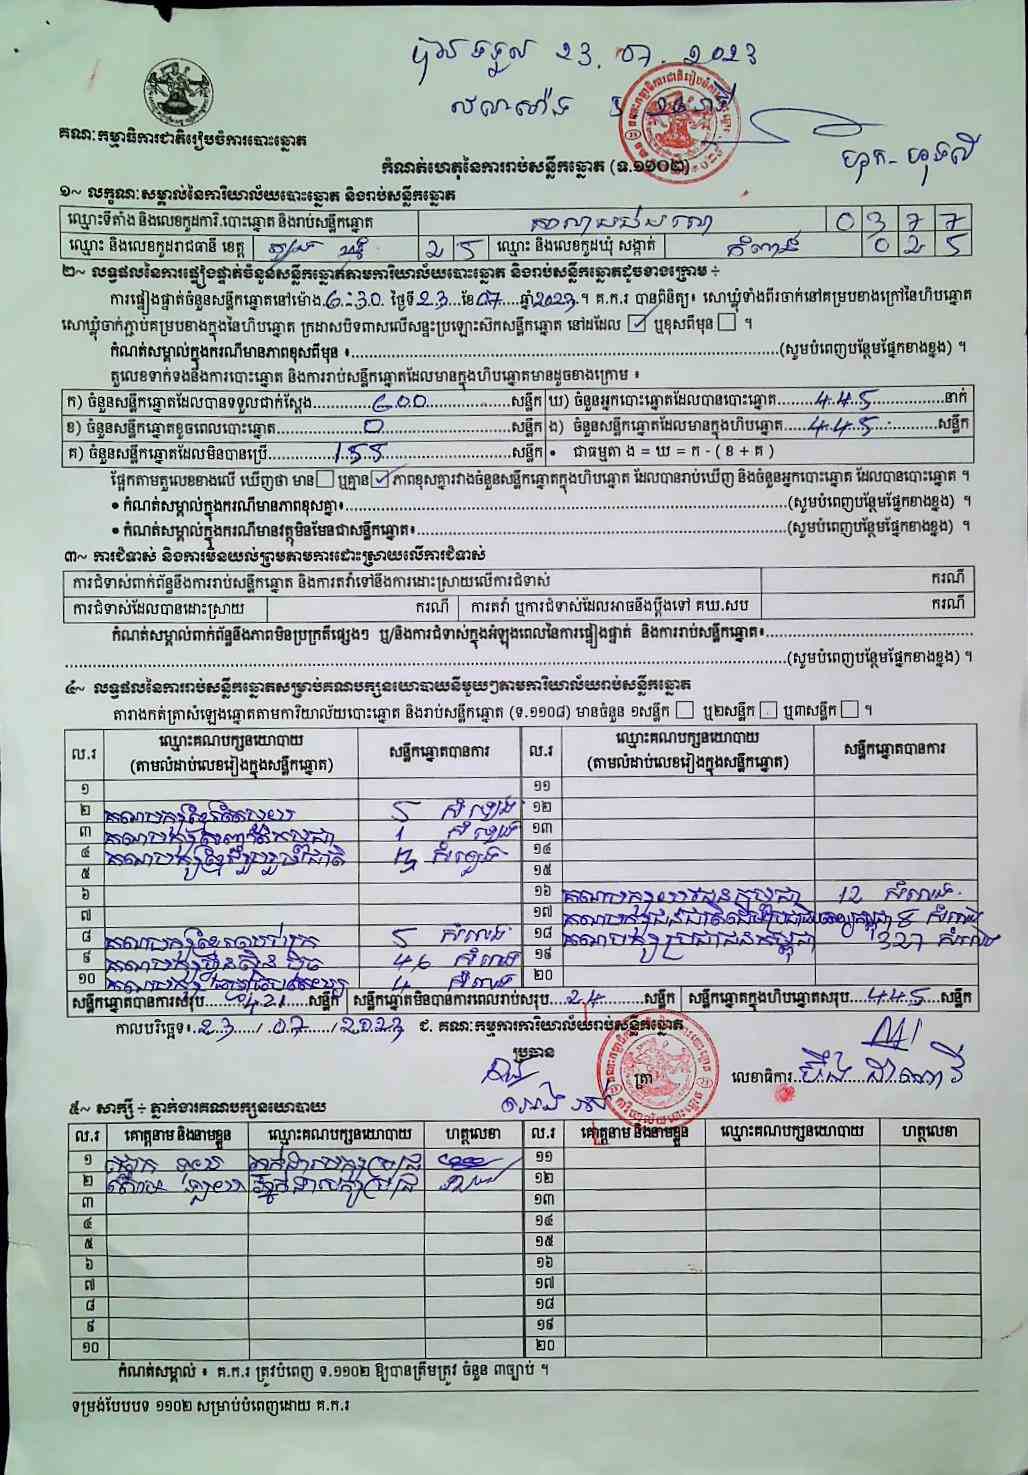 23. 07. 2023
គណៈកម្មាធិការជាតិរៀបចំការបោះឆ្នោត
កំណត់ហេតុនៃការរាប់សន្លឹកឆ្នោត (ទ.១១០២)
១~ លក្ខណៈសម្គាល់នៃការិយាល័យបោះឆ្នោត និងរាប់សន្លឹកឆ្នោត
ឈ្មោះទីតាំង និងលេខកូដការិ.បោះឆ្នោត និងរាប់សន្លឹកឆ្នោត 0 3 7 7
ឈ្មោះ និងលេខកូដរាជធានី ខេត្ត 2 5 ឈ្មោះ និងលេខកូដឃុំ សង្កាត់ 0 2 5
២~ លទ្ធផលនៃការផ្ទៀងផ្ទាត់ចំនួនសន្លឹកឆ្នោតតាមការិយាល័យបោះឆ្នោត និងរាប់សន្លឹកឆ្នោតដូចខាងក្រោម ÷
ការផ្ទៀងផ្ទាត់ចំនួនសន្លឹកឆ្នោតនៅម៉ោង 6:30 ថ្ងៃទី 23 ខែ 07 ឆ្នាំ 2023 ។ គ.ក.រ បានពិនិត្យ៖ សោឃ្លុំទាំងពីរចាក់នៅគម្របខាងក្រៅនៃហិបឆ្នោត
សោឃ្លុំចាក់ភ្ជាប់គម្របខាងក្នុងនៃហិបឆ្នោត ក្រដាសបិទពាសលើសន្ទះប្រឡោះស៊កសន្លឹកឆ្នោត នៅដដែល ☑ ឬខុសពីមុន ☐ ។
កំណត់សម្គាល់ក្នុងករណីមានភាពខុសពីមុន ៖ (សូមបំពេញបន្ថែមផ្នែកខាងខ្នង) ។
តួលេខទាក់ទងនឹងការបោះឆ្នោត និងការរាប់សន្លឹកឆ្នោតដែលមានក្នុងហិបឆ្នោតមានដូចខាងក្រោម ៖
ក) ចំនួនសន្លឹកឆ្នោតដែលបានទទួលជាក់ស្តែង 600 សន្លឹក ឃ) ចំនួនអ្នកបោះឆ្នោតដែលបានបោះឆ្នោត 445 នាក់
ខ) ចំនួនសន្លឹកឆ្នោតខូចពេលបោះឆ្នោត 0 សន្លឹក ង) ចំនួនសន្លឹកឆ្នោតដែលមានក្នុងហិបឆ្នោត 445 សន្លឹក
គ) ចំនួនសន្លឹកឆ្នោតដែលមិនបានប្រើ 155 សន្លឹក • ជាធម្មតា ង = ឃ = ក - ( ខ + គ )
ផ្អែកតាមតួលេខខាងលើ ឃើញថា មាន ☐ ឬគ្មាន ☑ ភាពខុសគ្នារវាងចំនួនសន្លឹកឆ្នោតក្នុងហិបឆ្នោត ដែលបានរាប់ឃើញ និងចំនួនអ្នកបោះឆ្នោត ដែលបានបោះឆ្នោត ។
• កំណត់សម្គាល់ក្នុងករណីមានភាពខុសគ្នា៖ (សូមបំពេញបន្ថែមផ្នែកខាងខ្នង) ។
• កំណត់សម្គាល់ក្នុងករណីមានវត្ថុមិនមែនជាសន្លឹកឆ្នោត៖ (សូមបំពេញបន្ថែមផ្នែកខាងខ្នង) ។
៣~ ការជំទាស់ និងការមិនយល់ព្រមតាមការដោះស្រាយលើការជំទាស់
ការជំទាស់ពាក់ព័ន្ធនឹងការរាប់សន្លឹកឆ្នោត និងការតវ៉ាទៅនឹងការដោះស្រាយលើការជំទាស់ ករណី
ការជំទាស់ដែលបានដោះស្រាយ ករណី ការតវ៉ា ឬការជំទាស់ដែលអាចនឹងប្តឹងទៅ គឃ.សប ករណី
កំណត់សម្គាល់ពាក់ព័ន្ធនឹងភាពមិនប្រក្រតីផ្សេងៗ ឬ/និងការជំទាស់ក្នុងអំឡុងពេលនៃការផ្ទៀងផ្ទាត់ និងការរាប់សន្លឹកឆ្នោត៖
(សូមបំពេញបន្ថែមផ្នែកខាងខ្នង) ។
៤~ លទ្ធផលនៃការរាប់សន្លឹកឆ្នោតសម្រាប់គណបក្សនយោបាយនីមួយៗតាមការិយាល័យរាប់សន្លឹកឆ្នោត
តារាងកត់ត្រាសំឡេងឆ្នោតតាមការិយាល័យបោះឆ្នោត និងរាប់សន្លឹកឆ្នោត (ទ.១១០៨) មានចំនួន ១សន្លឹក ☐ ឬ២សន្លឹក ☐ ឬ៣សន្លឹក ☐ ។
ល.រ ឈ្មោះគណបក្សនយោបាយ (តាមលំដាប់លេខរៀងក្នុងសន្លឹកឆ្នោត) សន្លឹកឆ្នោតបានការ ល.រ ឈ្មោះគណបក្សនយោបាយ (តាមលំដាប់លេខរៀងក្នុងសន្លឹកឆ្នោត) សន្លឹកឆ្នោតបានការ
១ ១១
២ 5 សំឡេង ១២
៣ 1 សំឡេង ១៣
៤ សំឡេង ១៤
៥ ១៥
៦ ១៦ គណបក្សយុវជនកម្ពុជា 12 សំឡេង
៧ ១៧ សំឡេង
៨ 5 សំឡេង ១៨ គណបក្សប្រជាជនកម្ពុជា 327 សំឡេង
៩ គណបក្សហ្វ៊ុនស៊ិនប៉ិច 46 សំឡេង ១៩
១០ 4 សំឡេង ២០
សន្លឹកឆ្នោតបានការសរុប 421 សន្លឹក សន្លឹកឆ្នោតមិនបានការពេលរាប់សរុប 24 សន្លឹក សន្លឹកឆ្នោតក្នុងហិបឆ្នោតសរុប 445 សន្លឹក
កាលបរិច្ឆេទ៖ 23/07/2023 ជ. គណៈកម្មការការិយាល័យរាប់សន្លឹកឆ្នោត
ប្រធាន
ត្រា លេខាធិការ
៥~ សាក្សី ÷ ភ្នាក់ងារគណបក្សនយោបាយ
ល.រ គោត្តនាម និងនាមខ្លួន ឈ្មោះគណបក្សនយោបាយ ហត្ថលេខា ល.រ គោត្តនាម និងនាមខ្លួន ឈ្មោះគណបក្សនយោបាយ ហត្ថលេខា
១ ១១
២ ១២
៣ ១៣
៤ ១៤
៥ ១៥
៦ ១៦
៧ ១៧
៨ ១៨
៩ ១៩
១០ ២០
កំណត់សម្គាល់ ៖ គ.ក.រ ត្រូវបំពេញ ទ.១១០២ ឱ្យបានត្រឹមត្រូវ ចំនួន ៣ច្បាប់ ។
ទម្រង់បែបបទ ១១០២ សម្រាប់បំពេញដោយ គ.ក.រ